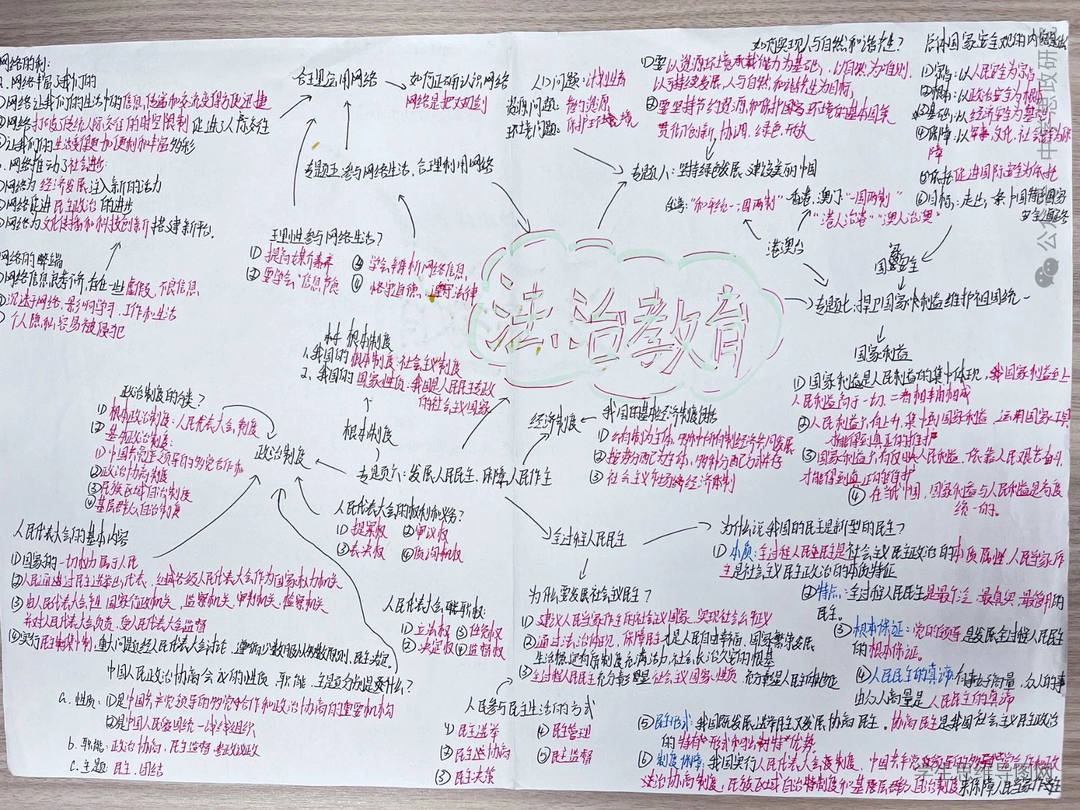 网络的利:
网络丰富了我们的
网络让我们的生活中的信息,传递和交流变得方便迅捷
网络打破了传统人际交往的时空限制促进了人际交往
让我们的生活变得更加便利和丰富多彩
网络推动了社会进步:
网络为经济发展注入新的活力
网络促进民主政治的进步
网络为文化传播和科技创新搭建新平台.
网络的弊端
网络信息良莠不齐,存在一些虚假、不良信息.
沉迷于网络,影响学习、工作和生活
个人隐私容易被侵犯
合理利用网络
如何正确认识网络
网络是把双刃剑
专题五:参与网络生活、合理利用网络
理性参与网络生活?
① 提高媒介素养
② 要学会“信息节食
③ 学会辨析网络信息.
④ 恪守道德、遵守法律
人口问题:计划生育
资源问题:节约资源
环境问题:保护环境
如何实现人与自然和谐共生?
①要以资源环境承载能力为基础,以自然为准则,
以可持续发展、人与自然和谐共生为目标,
②要坚持节约资源和保护环境的基本国策
贯彻创新、协调、绿色、开放
专题八:坚持绿色发展、建设美丽中国
总体国家安全观的内容
①宗旨:以人民安全为宗旨
②根本:以政治安全为根本
③基础:以经济安全为基础
④保障:以军事、文化、社会安全为保
障
⑤依托:促进国际安全为依托
⑥目标:走出一条中国特色国家
安全道路
“和平统一、一国两制”
香港、澳门:“一国两制”
“港人治港”“澳人治澳”
港澳台
国家安全
专题七:捍卫国家利益维护祖国统一
国家利益
①国家利益是人民利益的集中体现,我国国家利益至上
人民利益高于一切,二者相辅相成
②人民利益只有上升、集中到国家利益,运用国家工具
才能得到真正的维护
③国家利益只有反映人民利益,依靠人民艰苦奋斗,
才能得到真正的维护
④在当代中国,国家利益与人民利益是高度
统一的。
法治教育
根本制度
1.我国的根本制度:社会主义制度
2、我国的国家性质:我国是人民民主专政
的社会主义国家
根本制度
专题六:发展人民民主、保障人民作主
经济制度
我国的基本经济制度包括
①公有制为主体、多种所有制经济共同发展
②按劳分配为主体、多种分配方式并存
③社会主义市场经济体制
政治制度的分类?
①根本政治制度:人民代表大会制度
②基本政治制度:
①中国共产党领导的多党合作和
②政治协商制度
③民族区域自治制度
④基层群众自治制度
政治制度
人民代表大会的基本内容
①国家的一切权力属于人民
②人民通过民主选举出代表,组成各级人民代表大会作为国家权力机关
③由人民代表大会产生国家行政机关、监察机关、审判机关、检察机关
并对人民代表大会负责,受人民代表大会监督
④实行民主集中制,重大问题经人民代表大会讨论,遵循少数服从多数的原则,民主决定.
人民代表大会的权利和义务?
①提案权 ②审议权
③表决权 ④质询权
人民代表大会职权:
①立法权 ③任免权
②决定权 ④监督权
中国人民政治协商会议的性质、职能、主题分别是什么?
a. 性质:①是中国共产党领导的多党合作和政治协商的重要机构
②是中国人民爱国统一战线组织
b. 职能:政治协商、民主监督、参政议政
c. 主题:民主、团结
全过程人民民主
为什么要发展社会主义民主?
①建设人民当家作主的社会主义国家,实现社会主义
②通过法治体现、保障民主才是人民自由幸福,国家繁荣发展
生活稳定、有序制度充满活力,社会长治久安的根基
③全过程人民民主充分彰显社会主义国家性质,充分彰显人民主体地位
人民参与民主生活的方式
①民主选举 ④民主管理
②民主协商 ⑤民主监督
③民主决策
为什么说我国的民主是新型的民主?
①本质:全过程人民民主是社会主义民主政治的本质属性,人民当家作
主是社会主义民主政治的本质特征
②特点:全过程人民民主是最广泛、最真实、最管用的
民主.
③根本保证:党的领导是发展全过程人民民主
的根本保证.
④人民民主的真谛:有事好商量,众人的事
由众人商量是人民民主的真谛
⑤民主形式:我国既发展选举民主又发展协商民主,协商民主是我国社会主义民主政治
的特有形式和独特优势。
⑥制度保障:我国实行人民代表大会制度、中国共产党领导的多党合作和政
治协商制度、民族区域自治制度和基层群众自治制度来保障人民当家作主
公众号
中学思政研究
学生思维导图网